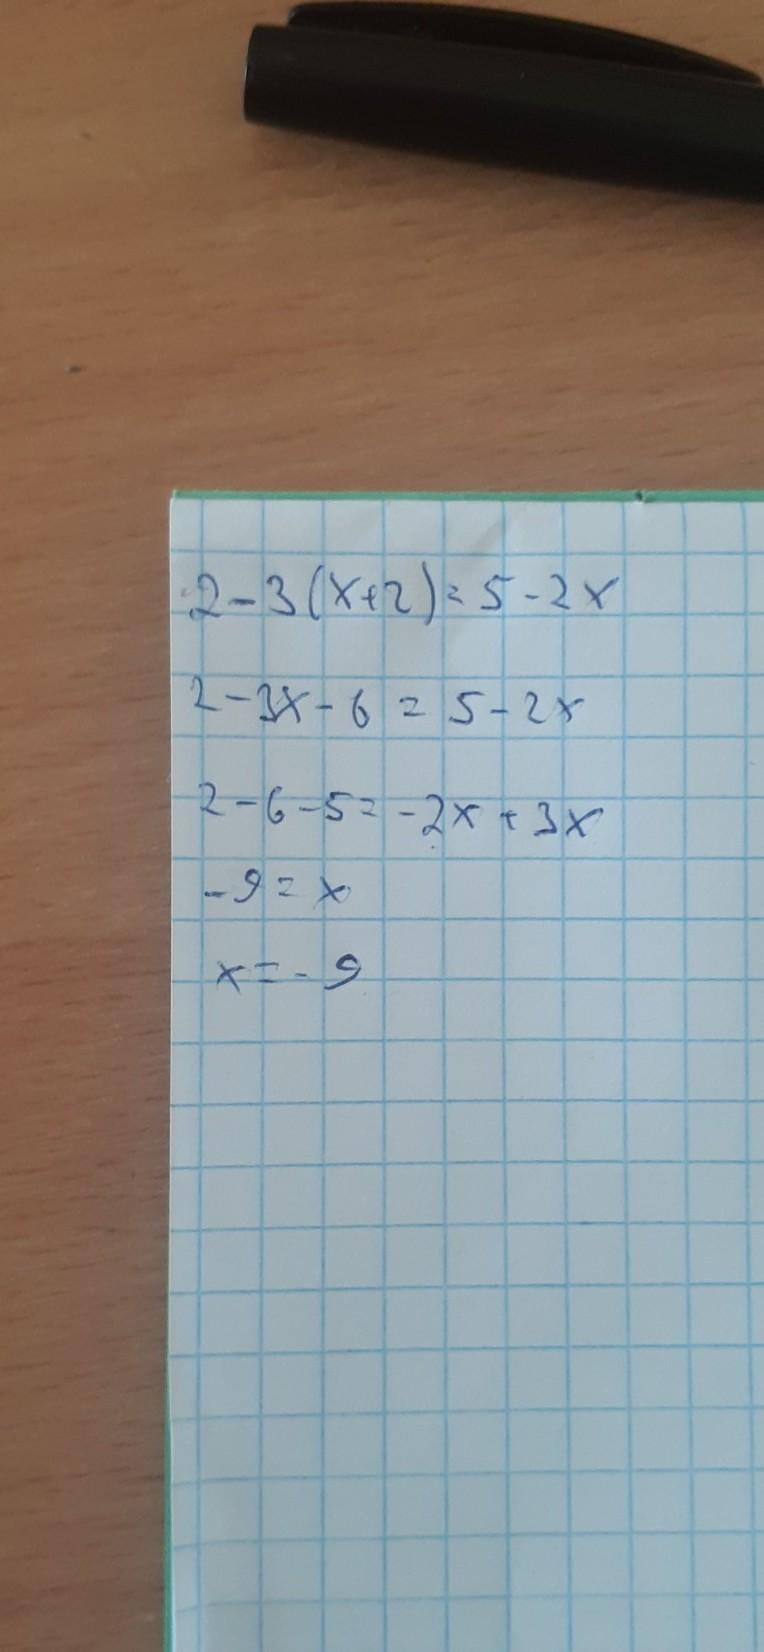 2-3(x+2)=5-2x
2-3x-6=5-2x
2-6-5=-2x+3x
-9=x
x=-9